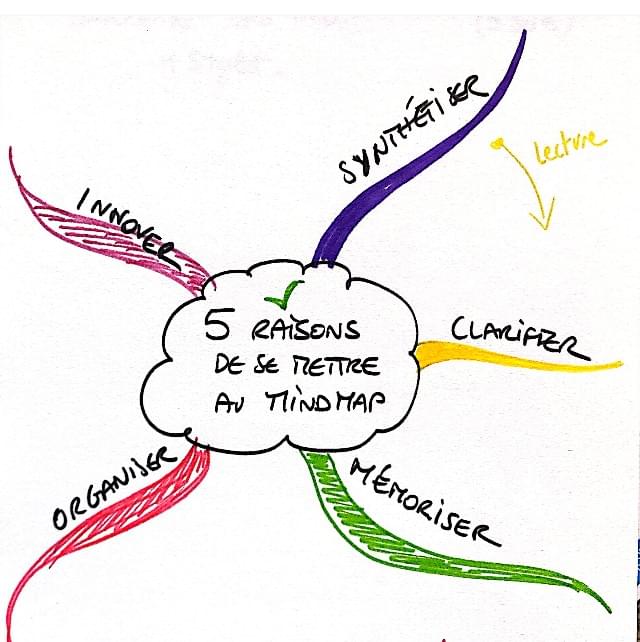 5 RAISONS
DE SE METTRE
AU MINDMAP
SYNTHÉTISER
lecture
CLARIFIER
MÉMORISER
ORGANISER
INNOVER